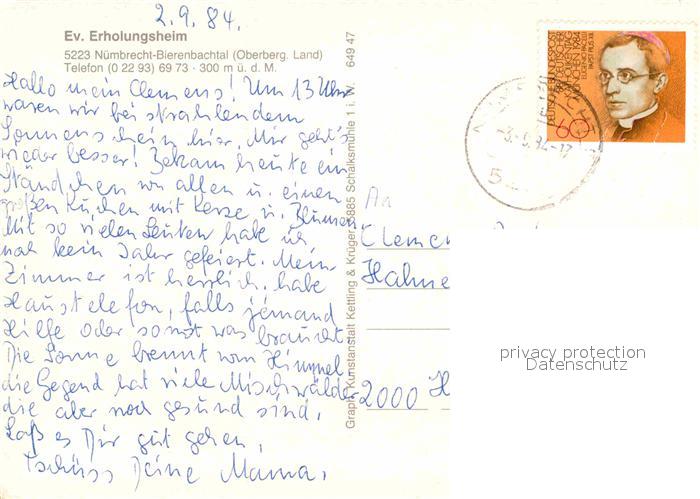 2.9.84.
Ev. Erholungsheim
5223 Nümbrecht-Bierenbachtal (Oberberg. Land)
Telefon (0 22 93) 69 73 · 300 m ü. d. M.
Hallo mein Clemens! Um 13 Uhr
waren wir bei strahlendem
Sonnenschein hier. Mir geht's
wieder besser! Bekam heute ein
Ständchen von allen u. einen
großen Kuchen mit Kerze u. Blumen
Mit so vielen Leuten habe ich
noch kein Jahr gefeiert. Mein
Zimmer ist herrlich, habe
Haustelefon, falls jemand
Hilfe oder sonst was braucht.
Die Sonne brennt vom Himmel,
die Gegend hat viele Mischwälder
die aber noch gesund sind.
Laß es Dir gut gehen,
Tschüss Deine Mama.
649 47
Graph. Kunstanstalt Kettling & Krüger, 5885 Schalksmühle 1 i. W.
DEUTSCHE BUNDESPOST
88. DEUTSCHER
KATHOLIKENTAG
MÜNCHEN 1984
EUGENIO PACELLI
PAPST PIUS XII.
60
5
An
Clemen
Hahne
2000 H
privacy protection
Datenschutz